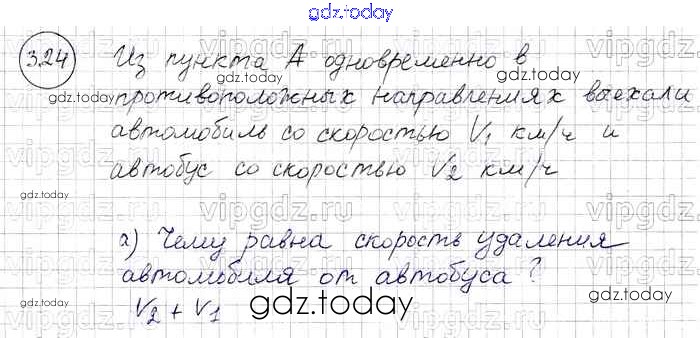 gdz.today
3.24 Из пункта А одновременно в
gdz.today
противоположных направлениях выехали
автомобиль со скоростью V₁ км/ч и
gdz.today
автобус со скоростью V₂ км/ч
gdz.today
gdz.today
а) Чему равна скорость удаления
автомобиля от автобуса?
gdz.today
V₂ + V₁
gdz.today